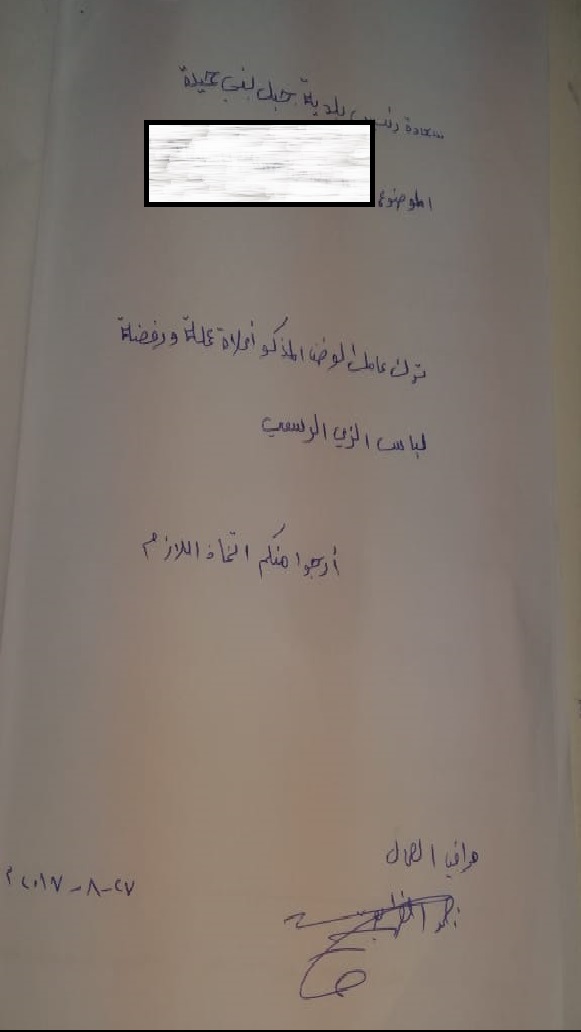 سعادة رئيس بلدية جبل بني حميدة
الموضوع
ترك عامل الوطن المذكو أعلاة عملة ورفضة
لباس الزي الرسمي
أرجوا منكم اتخاذ اللازم
مراقب العمال
٢٧-٨-٢٠١٧م